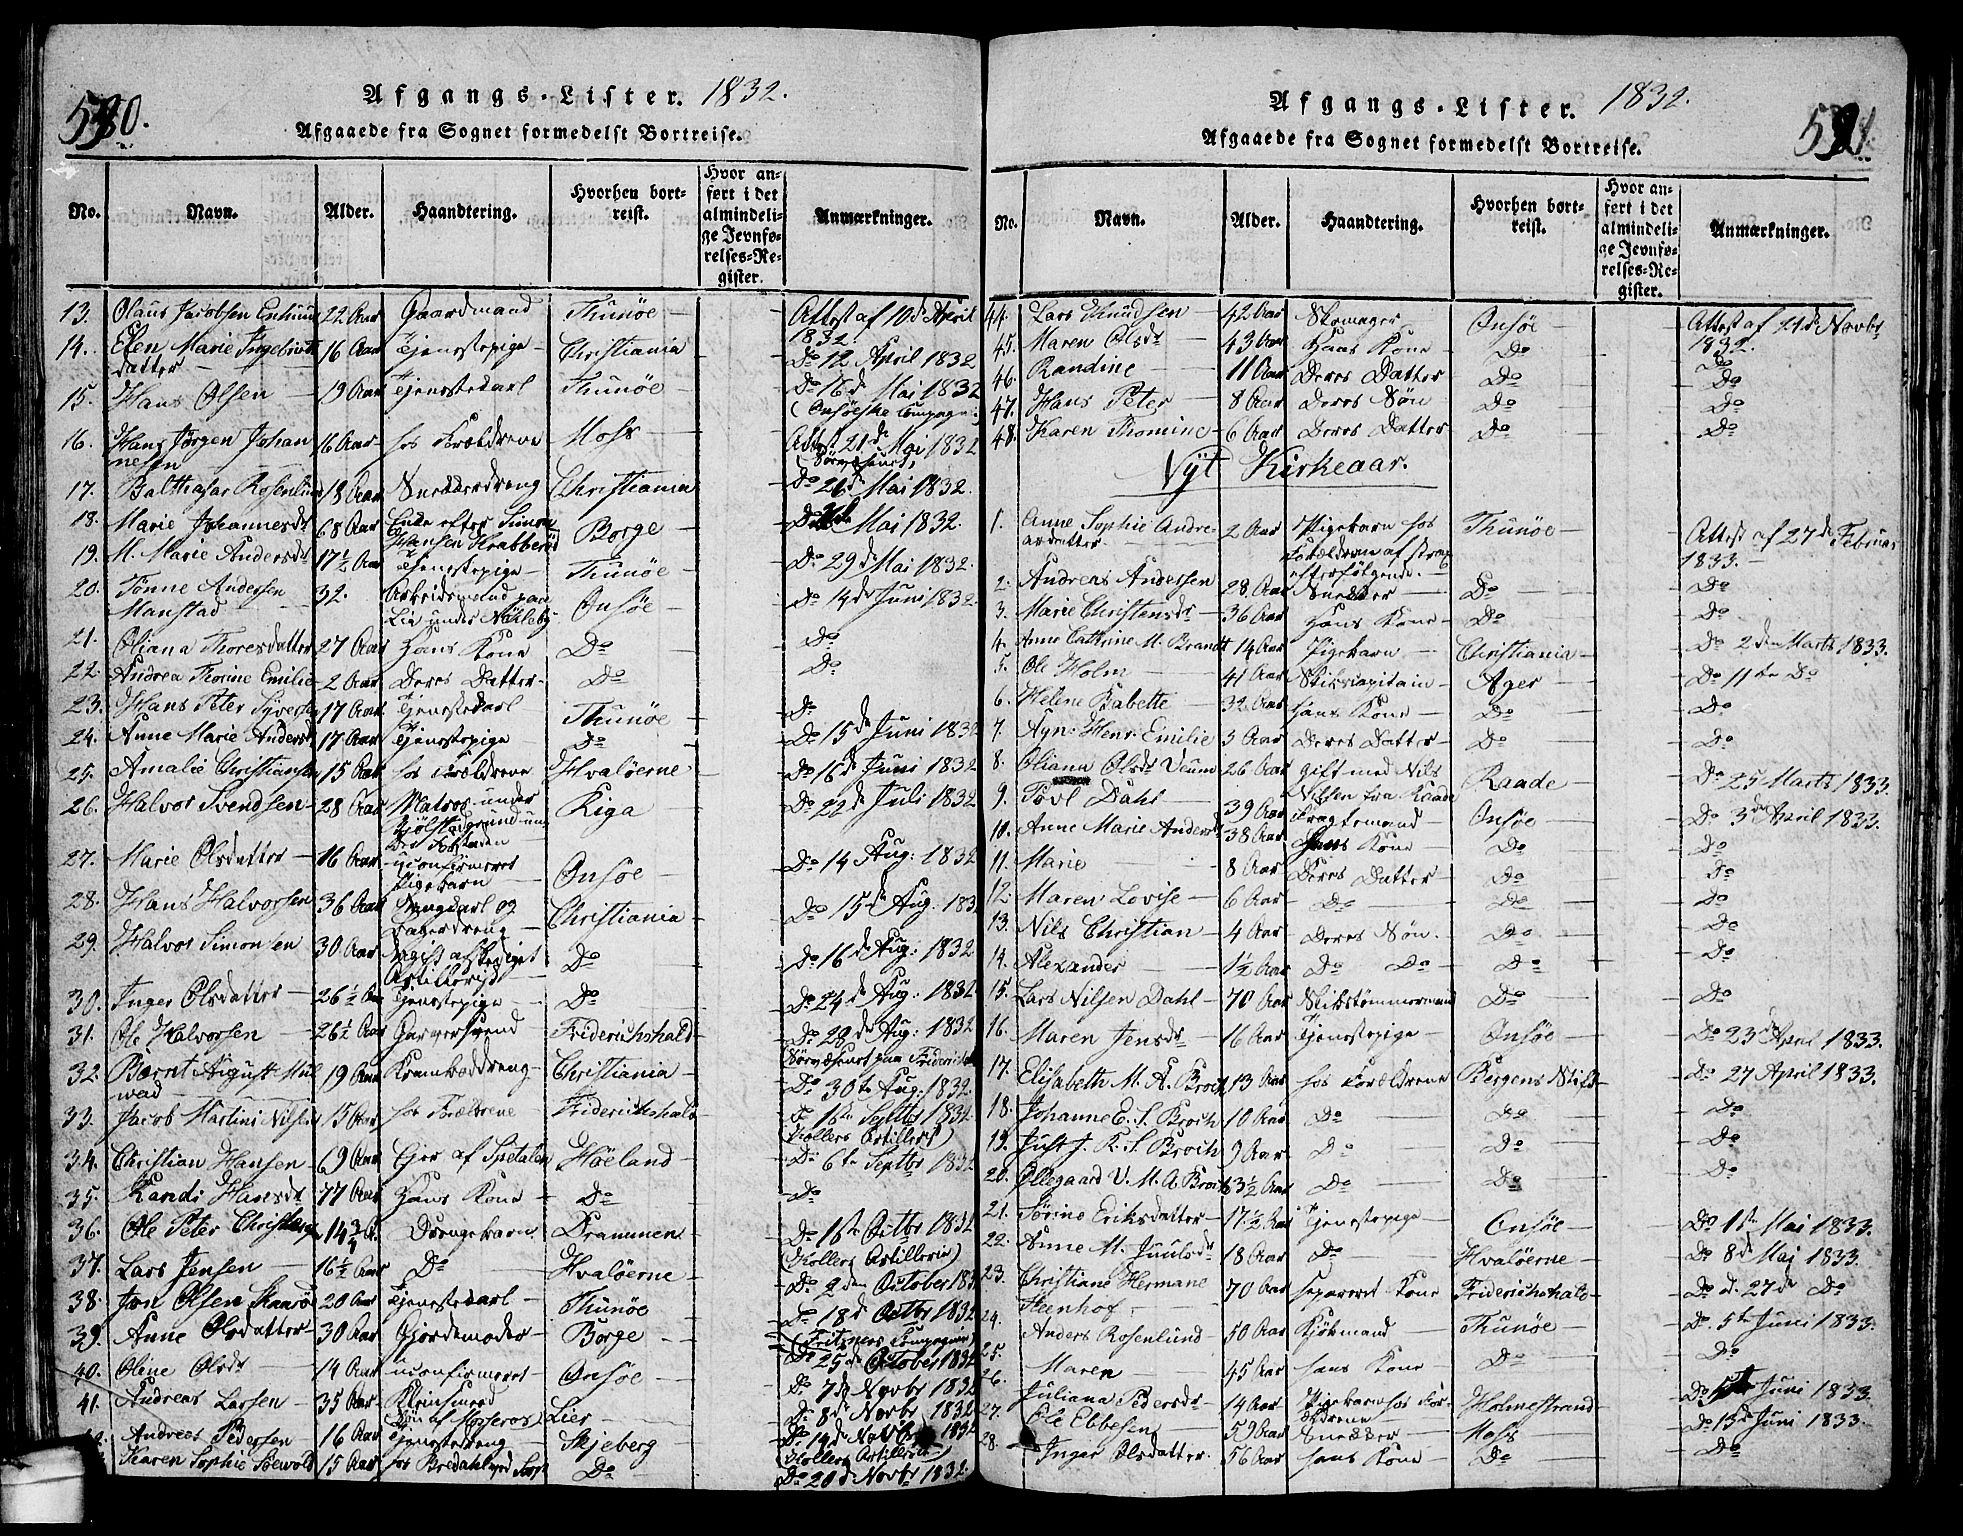 530.
Afgangs-Lister. 1832.
Afgaaede fra Sognet formedelst Bortreise.
No. Navn. Alder. Haandtering. Hvorhen bortreist. Hvor anført i det almindelige Jevnførelses-Register. Anmærkninger.
13. Olaus Jacobsen 22 Aar Gaardmand Thunøe Attest af 10de April 1832.
14. Elen Marie Ingebrigtsdatter 16 Aar Tjenestepige Christiania Do 12 April 1832
15. Hans Olsen 19 Aar Tjenestekarl Thunøe Do 16de Mai 1832
(Onsøeske Compagni)
16. Hans Jørgen Johannesen 16 Aar hos Forældrene Moss Attest 21de Mai 1832
17. Balthasar Rosenlund 18 Aar Snedkerdreng Christiania Do 26de Mai 1832.
18. Marie Johannesdr 68 Aar Enke efter Simon Hansen Krabberød Borge Do Mai 1832.
19. M. Marie Andersdr 17½ Aar Tjenestepige Thunøe Do 29de Mai 1832.
20. Tønne Andersen Manstad 32. Arbeidsmand paa Lie under Nøkleby Onsøe Do 14de Juni 1832
21. Oliana Thoresdatter 27 Aar Hans Kone Do Do
22. Andrea Thorine Emilie 2 Aar Deres Datter Do Do
23. Hans Peter Syversen 17 Aar Tjenestekarl Thunøe Do
24. Anne Marie Andersdr 17 Aar Tjenestepige Do Do 15de Juni 1832
25. Amalie Christiansen 15 Aar hos Forældrene Hvaløerne Do 16de Juni 1832
26. Halvor Svendsen 28 Aar Matros under Kjølstadgrund Riga Do 22de Juli 1832
27. Marie Olsdatter 16 Aar uconfirmeret Pigebarn Onsøe Do 14 Aug: 1832
28. Hans Halvorsen 36 Aar Christiania Do 15de Aug: 1832
29. Halvor Simonsen 30 Aar afskediget Artillerist Do Do 16de Aug: 1832
30. Inger Olsdatter 26½ Aar Tjenestepige Do Do 24de Aug: 1832
31. Ole Halvorsen 26½ Aar Garversvend Friderichshald Do 28de Aug: 1832
32. Bernt August Mulwad 19 Aar Kramboddreng Christiania Do 30te Aug: 1832.
33. Jacob Martini Nilsen 15 Aar hos Forældrene Friderichshald Do 1ste Septbr 1832
(Kollers Artilleri)
34. Christian Hansen 69 Aar Ejer af Spetalen Høeland Do 6te Septbr 1832
35. Randi Hansdr 77 Aar Hans Kone Do Do
36. Ole Peter Christensen 14¾ A. Drengebarn Drammen Do 1ste Octbr 1832
(Kollers Artilleri)
37. Lars Jensen 16½ Aar Do Hvaløerne Do 2den October 1832
38. Jon Olsen Skaarø 20 Aar Tjenestekarl Thunøe Do 18de Octbr 1832
39. Anne Olsdatter 30 Aar Gjordemoder Borge (Fritzners Compagnie)
Do 25de October 1832
40. Oline Olsdr 14 Aar uconfirmeret Onsøe Do 7de Novbr 1832
41. Andreas Larsen 35 Aar Kleinsmed Lier Do 8de Novbr 1832
Andreas Pedersen 16 Aar Tjenestedreng Skjeberg Do 14de Novbr 1832
(Kollers Artilleri)
Karen Sophie Soewold 15 Aar hos Do Do 20de Novbr 1832.
Afgangs-Lister. 1832.
531.
Afgaaede fra Sognet formedelst Bortreise.
No. Navn. Alder. Haandtering. Hvorhen bortreist. Hvor anført i det almindelige Jevnførelses-Register. Anmærkninger.
44. Lars Knudsen 42 Aar Skomager Onsøe Attest af 21de Novbr 1832.
45. Maren Olsdr 43 Aar Hans Kone Do Do
46. Randine 11 Aar Deres Datter Do Do
47. Hans Peter 8 Aar Deres Søn Do Do
48. Karen Thomine 6 Aar Deres Datter Do Do
Nyt Kirkeaar.
1. Anne Sophie Andreasdatter 2 Aar Pigebarn hos Forældrene af strax efterfølgende. Thunøe Attest af 27de Februar 1833.
2. Andreas Andersen 28 Aar Snedker Do Do
3. Marie Christensdr 36 Aar Hans Kone Do Do
4. Anne Cathrine M. Brandt 14 Aar Pigebarn Christiania Do 2den Marts 1833.
5. Ole Holm 41 Aar Skibscapitain Ager Do 11te Do
6. Helene Babette 32 Aar Hans Kone Do Do
7. Agn: Henr: Emilie 3 Aar Deres Datter Do Do
8. Oliana Olsdr Veum 26 Aar gift med Nils Nilsen fra Raade Raade Do 25 Marts 1833.
9. Tovl Dahl 39 Aar Fragtemand Onsøe Do 3de April 1833.
10. Anne Marie Andersdr 38 Aar Hans Kone Do Do
11. Marie 8 Aar Deres Datter Do Do
12. Maren Lovise 6 Aar Do Do Do
13. Nils Christian 4 Aar Deres Søn. Do Do
14. Alexander 1½ Aar Do Do Do Do
15. Lars Nilsen Dahl 70 Aar Skibstømmermand Do Do
16. Maren Jensdr 16 Aar Tjenestepige Onsøe Do 23de April 1833.
17. Elisabeth M. A. Broch 13 Aar hos Forældrene Bergens Stift Do 27 April 1833.
18. Johanne E. S. Broch 10 Aar Do Do Do
19. Just J. K. S. Broch 9 Aar Do Do Do
20. Øllegaard V. M. A. Broch 3½ Aar Do Do Do
21. Sørine Eriksdatter 17½ Aar Tjenestepige Onsøe Do 1ste Mai 1833.
22. Anne M. Juulsdr 18 Aar Do Hvaløerne Do 8de Maj 1833.
23. Christiane Hermane Steenhof 70 Aar separeret Kone Friderichshald Do d. 27de Do
24. Anders Rosenlund 50 Aar Kjøbmand Thunøe Do 5te Juni 1833.
25. Maren 45 Aar hans Kone Do Do
26. Juliana Pedersdr 14 Aar Pigebarn hos Forældrene Holmestrand Do Juni 1833.
27. Ole Ebbesen 59 Aar Snedker Moss Do 13de Juni 1833.
28. Inger Olsdatter 56 Aar hans Kone Do Do